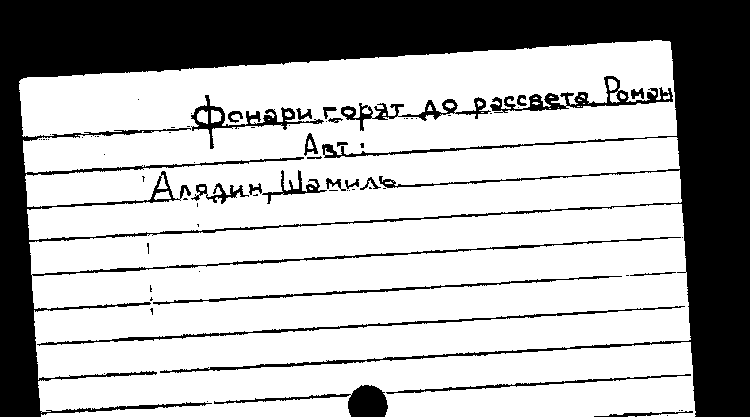 Фонари горят до рассвета. Роман
Авт:
Алядин, Шамиль